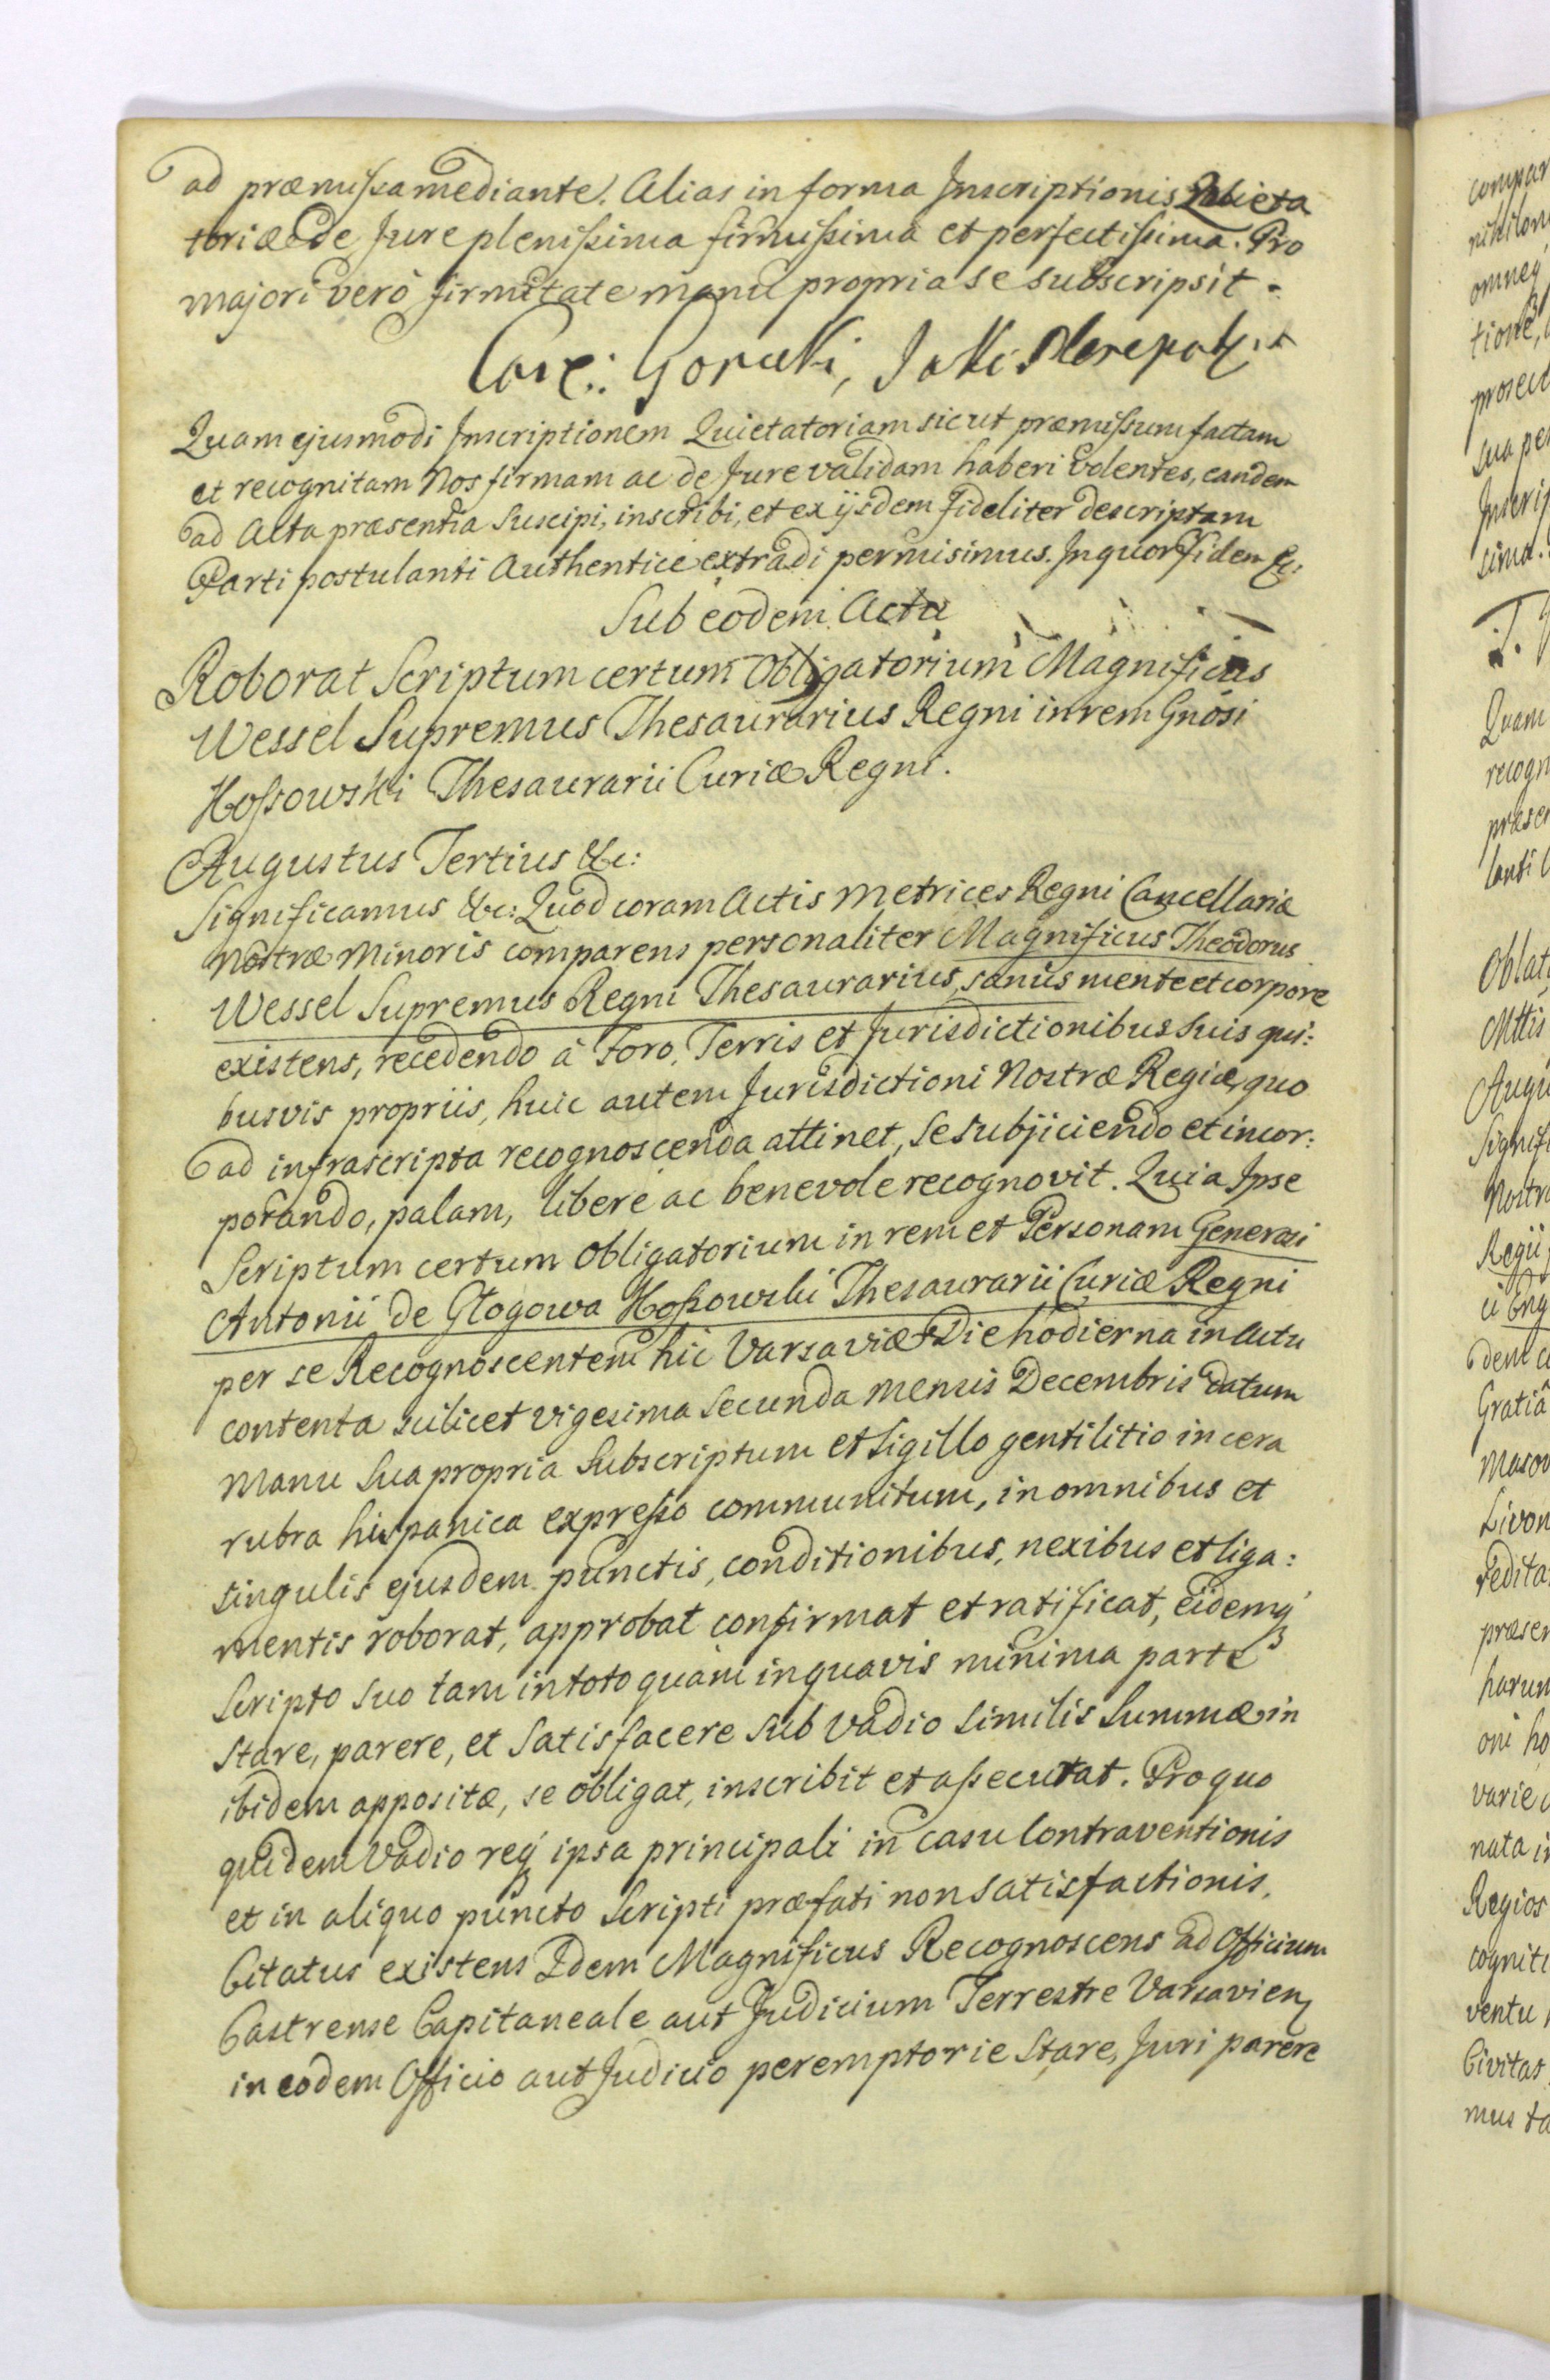 ad præmissa mediante. Alias in forma Inscriptionis Quieta
toriæ de Jure plenissima firmissima et perfectissima. Pro
majori verò firmitate manu propria se subscripsit.
Quam ejusmodi Inscriptionem Quietatoriam sicut præmissum factam
et recognitam Nos firmam ac de Jure validam haberi volentes, eandem
ad Acta præsentia suscipi, inscribi, et ex ijsdem fideliter descriptam
Parti postulanti Authentice extradi permisimus. In quor Fidem &c:
Sub eodem Actu
Roborat Scriptum certum Obligatorium Magnificus
Wessel Supremus Thesaurarius Regni in rem Gnosi
Kossowski Thesaurarii Curiæ Regni.
Augustus Tertius &c:
Significamus &c: Quod coram Actis Metrices Regni Cancellariæ
Nostræ Minoris comparens personaliter Magnificus Theodorus
Wessel Supremus Regni Thesaurarius, sanus mente et corpore
existens, recedendo à Foro, Terris et Jurisdictionibus suis qui:
busvis propriis, huic autem Jurisdictioni Nostræ Regiæ, quo
ad infrascripta recognoscenda attinet, se subjiciendo et incor:
porando, palam, libere ac benevole recognovit. Quia Ipse
Scriptum certum Obligatorium in rem et Personam Generosi
Antonii de Głogowa Kossowski Thesaurarii Curiæ Regni
per se Recognoscentem hic Varsaviæ Die hodierna in Actu
contenta scilicet vigesima secunda Mensis Decembris datum
Manu sua propria Subscriptum et Sigillo gentilitio in cera
rubra hispanica expresso communitum, in omnibus et
singulis ejusdem punctis, conditionibus, nexibus et liga:
mentis roborat, approbat confirmat et ratificat, eidemq́
Scripto suo tam in toto quàm in quavis minima parte
stare, parere, et satisfacere sub vadio similis Summæ in
ibidem appositæ, se obligat, inscribit et assecurat. Pro quo
quidem Vadio req́ ipsa principali in casu Contraventionis
et in aliquo puncto Scripti præfati non satisfactionis,
Citatus existens Idem Magnificus Recognoscens ad Officium
Castrense Capitaneale aut Judicium Terrestre Varsavien
in eodem Officio aut Judicio peremptorie stare, Juri parere